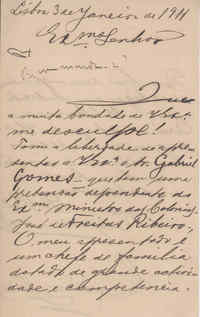 Lisboa 3 de Janeiro de 1911
Exmo Senhor
Que
a muita bondade de V. Exa.
me desculpe!
Tomo a liberdade de apre
sentar a V. Exa. o Sr. Gabriel
Gomes que tem uma
pretensão dependente do
Exmo ministro das Colonias,
José de Freitas Ribeiro,
O meu apresentado é
um chefe de familia
dotado de grande activi
dade e competencia.